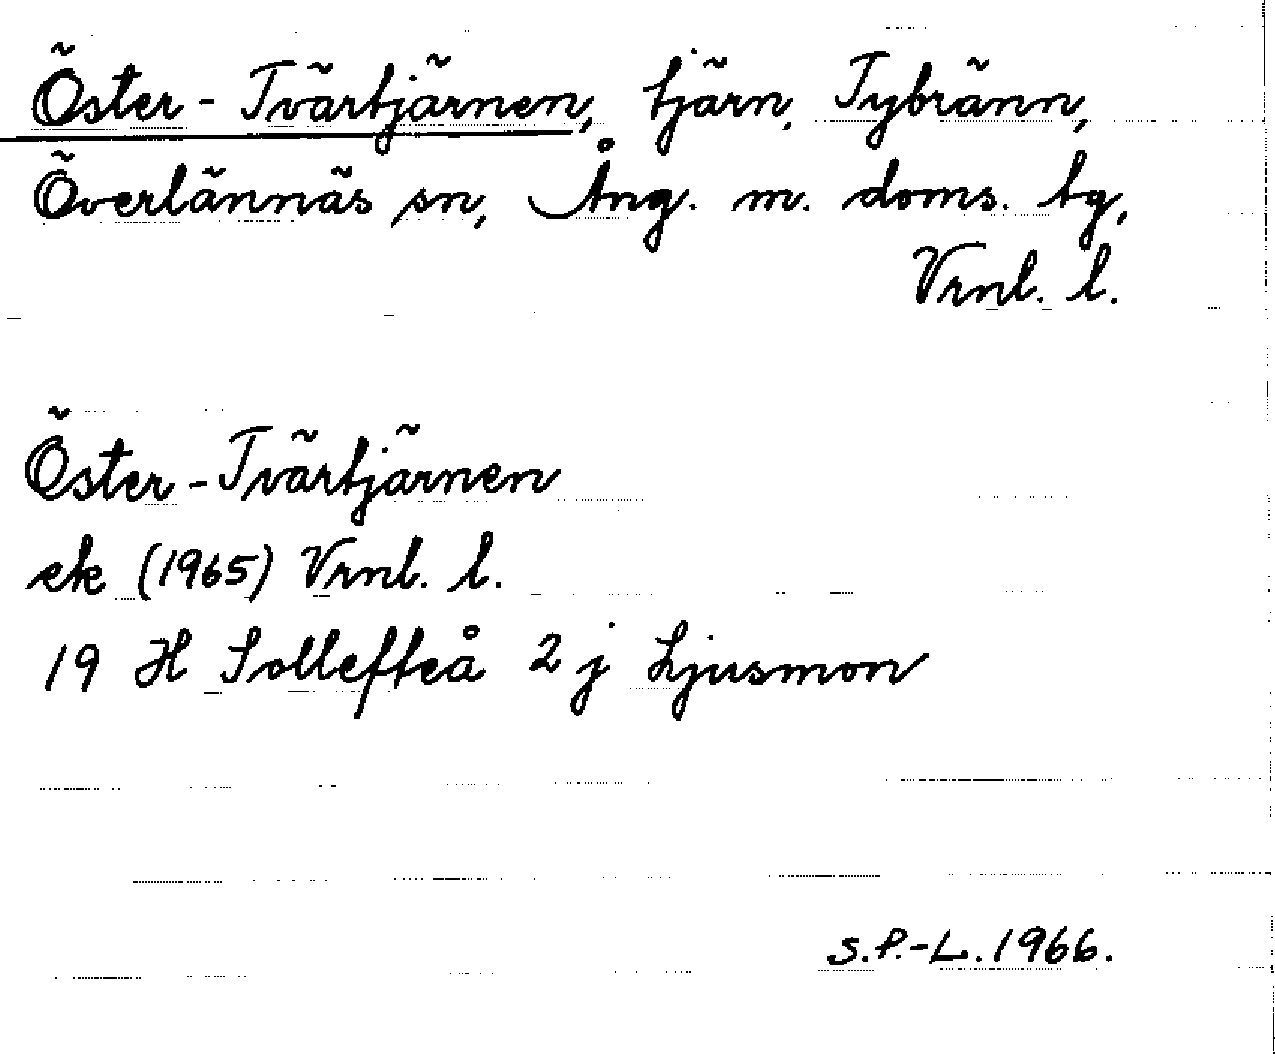 Öster-Tvärtjärnen, tjärn, Tybränn,
Överlännäs sn, Ång. m. doms. tg,
Vrnl. l.
Öster-Tvärtjärnen
ek (1965) Vrnl. l.
19 H Sollefteå 2 j Ljusmon
S.P.-L. 1966.